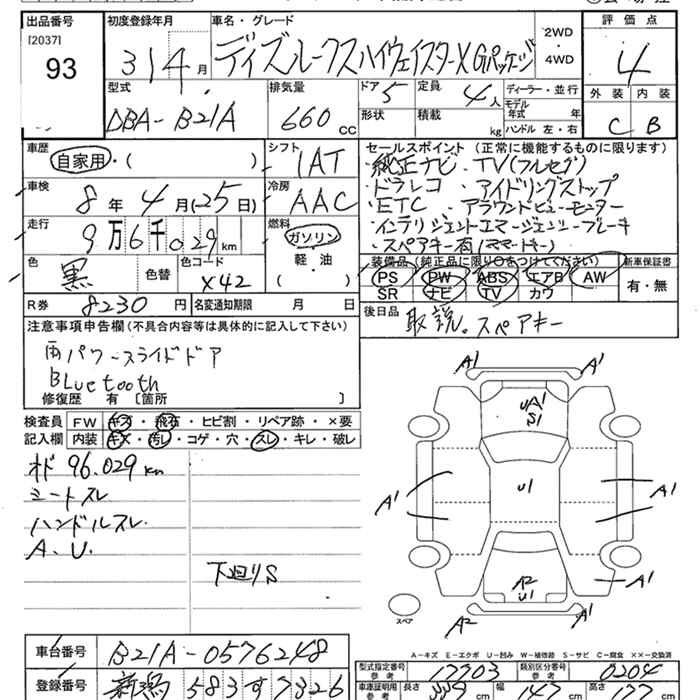 出品番号 初度登録年月 車名・グレード 2WD 評価点
[2037] 31年4月 デイズルークスハイウェイスターX Gパッケージ 4WD 4
93
型式 排気量 ドア 定員 ディーラー・並行 外装 内装
DBA-B21A 660cc 5 4人 モデル年式 年 C B
形状 積載 kg ハンドル 左・右
車歴 シフト セールスポイント (正常に機能するものに限ります)
自家用・( ) IAT ・純正ナビ・TV(フルセグ)
車検 冷房 ・ドラレコ ・アイドリングストップ
8年4月(25日) AAC ・ETC ・アラウンドビューモニター
走行 燃料 ・インテリジェントエマージェンシーブレーキ
9万6千029km ガソリン ・スペアキー有(スマートキー)
色 色替 色コード 軽・油 装備品 (純正品に限り○をつけてください) 新車保証書
黒 X42 ( ) PS PW ABS エアB AW 有・無
SR ナビ TV カワ
R券 8230円 名変通知期限 月 日 後日品 取説。スペアキー
注意事項申告欄(不具合内容等は具体的に記入して下さい)
両パワースライドドア
Bluetooth
修復歴 有 [箇所 ]
検査員 FW キズ・飛石・ヒビ割・リペア跡・×要
記入欄 内装 キズ・汚レ・コゲ・穴・スレ・キレ・破レ
オド 96.029km
シートスレ
ハンドルスレ.
A.U.
下廻りS
A1 A1
UA1
S1
A1 U1 A1
A2 A1
U1
A2 A1
スペア
A-キズ E-エクボ U-凹み W-補修跡 S-サビ C-腐食 ××-交換済
車台番号 B21A-0576248 型式指定番号 参考 17703 類別区分番号 参考 0204
登録番号 新潟 583す7326 車庫証明用 参考 長さ cm 幅 cm 高さ cm